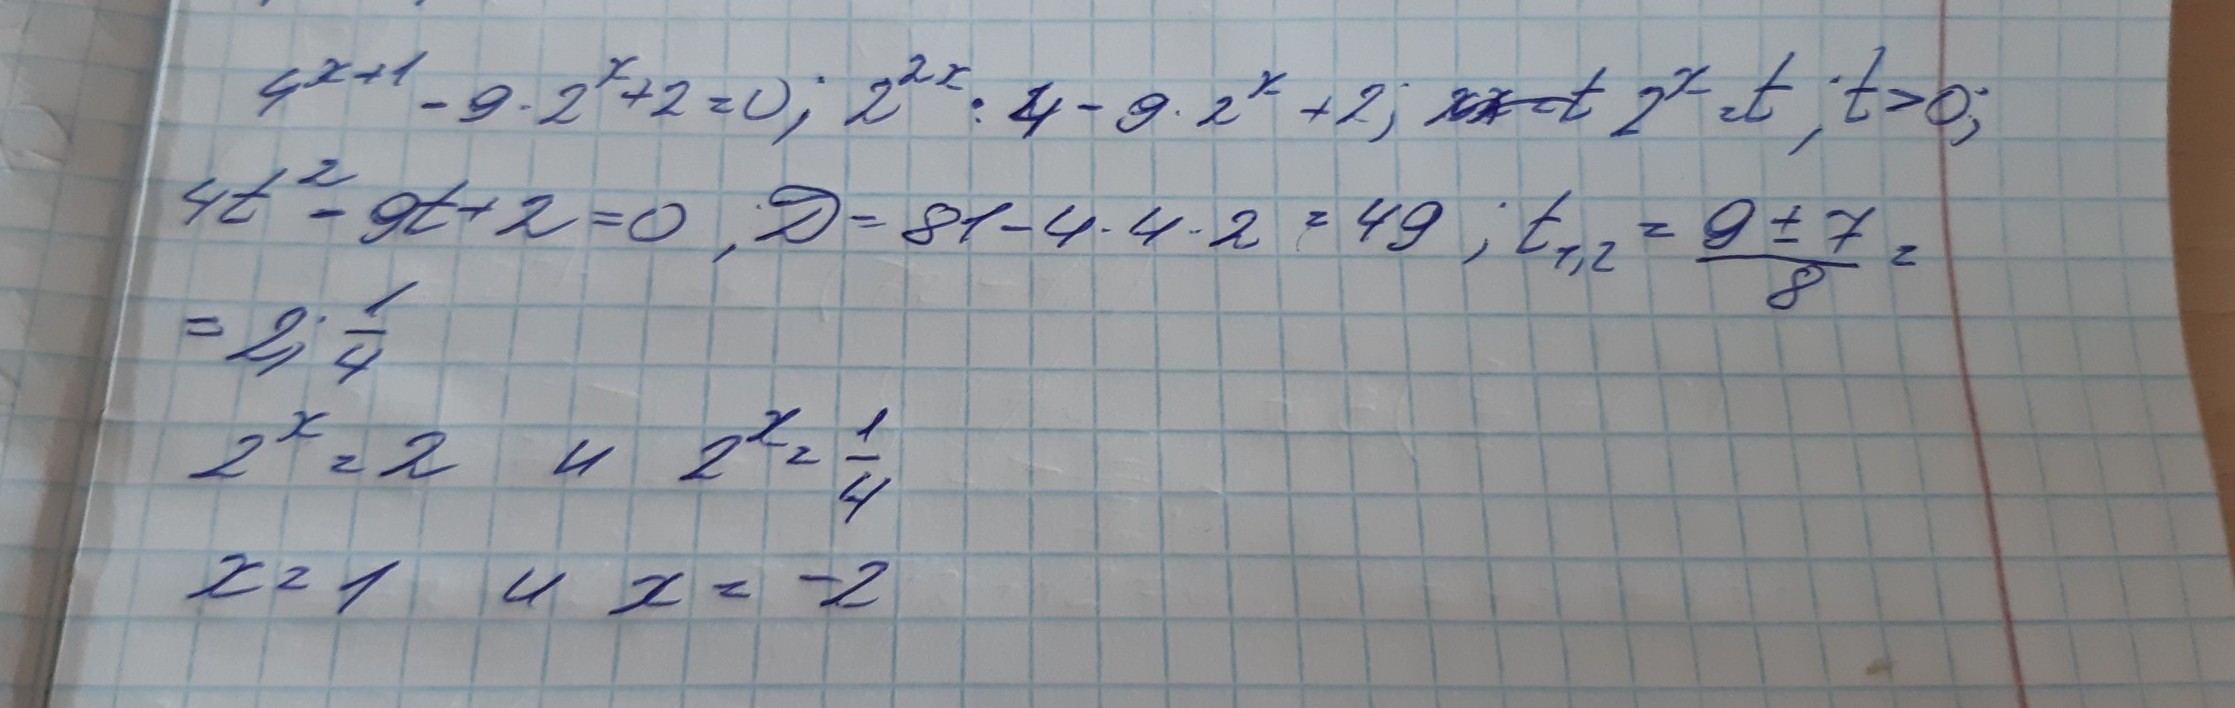 4^{x+1} - 9 · 2^x + 2 = 0; 2^{2x} · 4 - 9 · 2^x + 2; 2^x = t; t > 0;
4t² - 9t + 2 = 0; D = 81 - 4 · 4 · 2 = 49; t_{1,2} = \frac{9 ± 7}{8} =
= 2; \frac{1}{4}
2^x = 2 и 2^x = \frac{1}{4}
x = 1 и x = -2